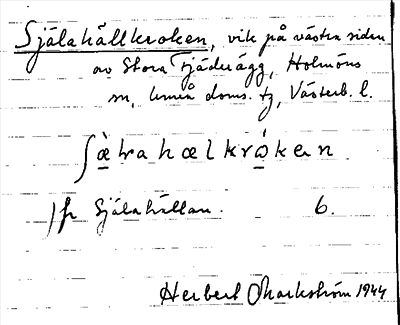 Själahällkroken, vik på västra sidan
av Stora Fjäderägg, Holmöns
sn, Umeå doms. tg, Västerb. l.
ʃæ̀lrahælkrò̩kən
jfr Själahällan. 6.
Herbert Markström 1944